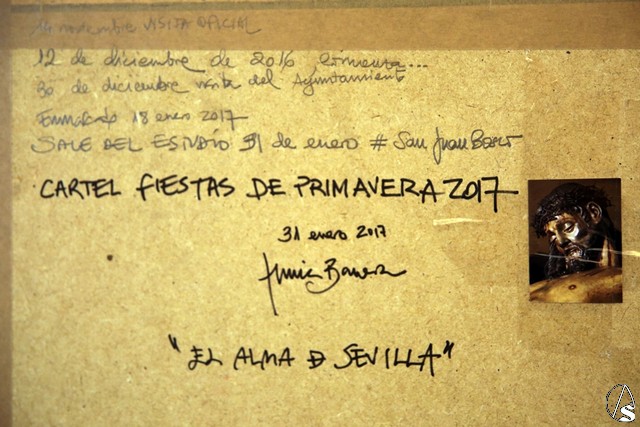 14 noviembre VISITA OFICIAL
12 de diciembre de 2016
30 de diciembre visita del Ayuntamiento
18 enero 2017
SALE DEL ESTUDIO 31 de enero # San Juan Bosco
CARTEL FIESTAS DE PRIMAVERA 2017
31 enero 2017
"EL ALMA D SEVILLA"